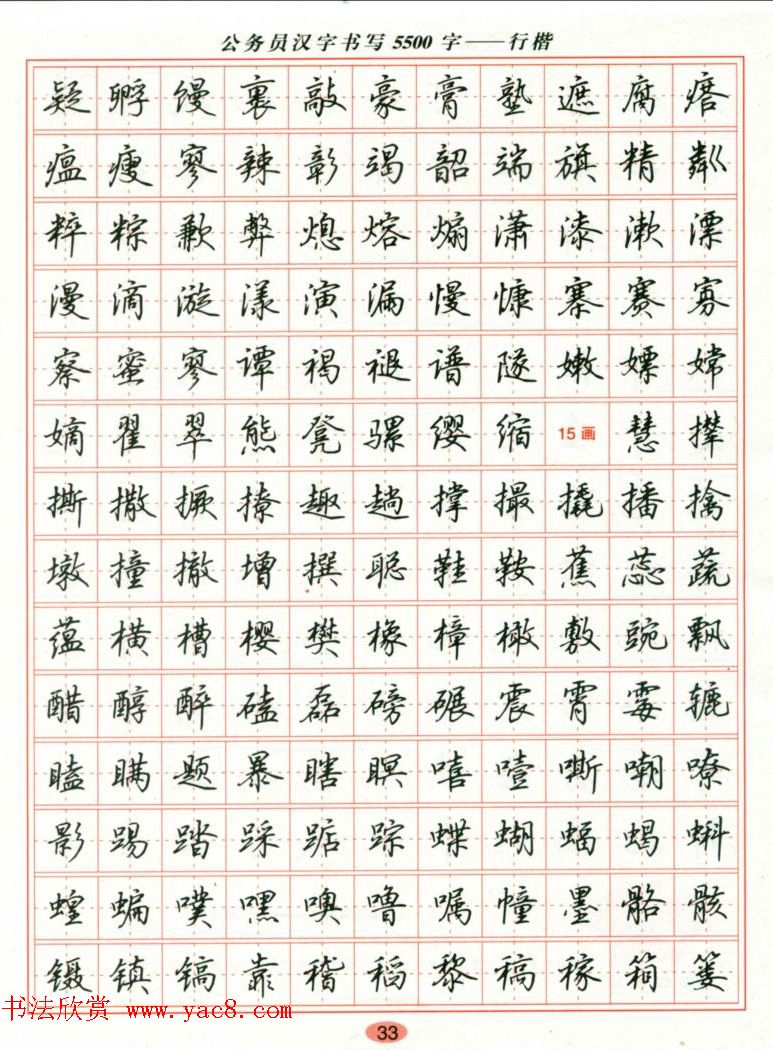 公务员汉字书写5500字——行楷
疑孵馒裹敲豪膏塾遮腐瘩
瘟瘦寥辣彰竭韶端旗精粼
粹粽歉弊熄熔煽潇漆漱漂
漫滴漩漾演漏慢慷寨赛寡
察蜜寥谭褐褪谱隧嫩嫖嫦
嫡翟翠熊凳骡缨缩15画慧撵
撕撒撅撩趣趟撑撮撬播擒
墩撞撤增撰聪鞋鞍蕉蕊蔬
蕴横槽樱樊橡樟橄敷豌飘
醋醇醉磕磊磅碾震霄霉辘
瞌瞒题暴瞎瞑嘻噎嘶嘲嘹
影踢踏踩踞踪蝶蝴蝠蝎蝌
蝗蝙噗嘿噢噜嘱幢墨骼骸
镊镇镐靠稽稻黎稿稼箱篓
书法欣赏 www.yac8.com
33